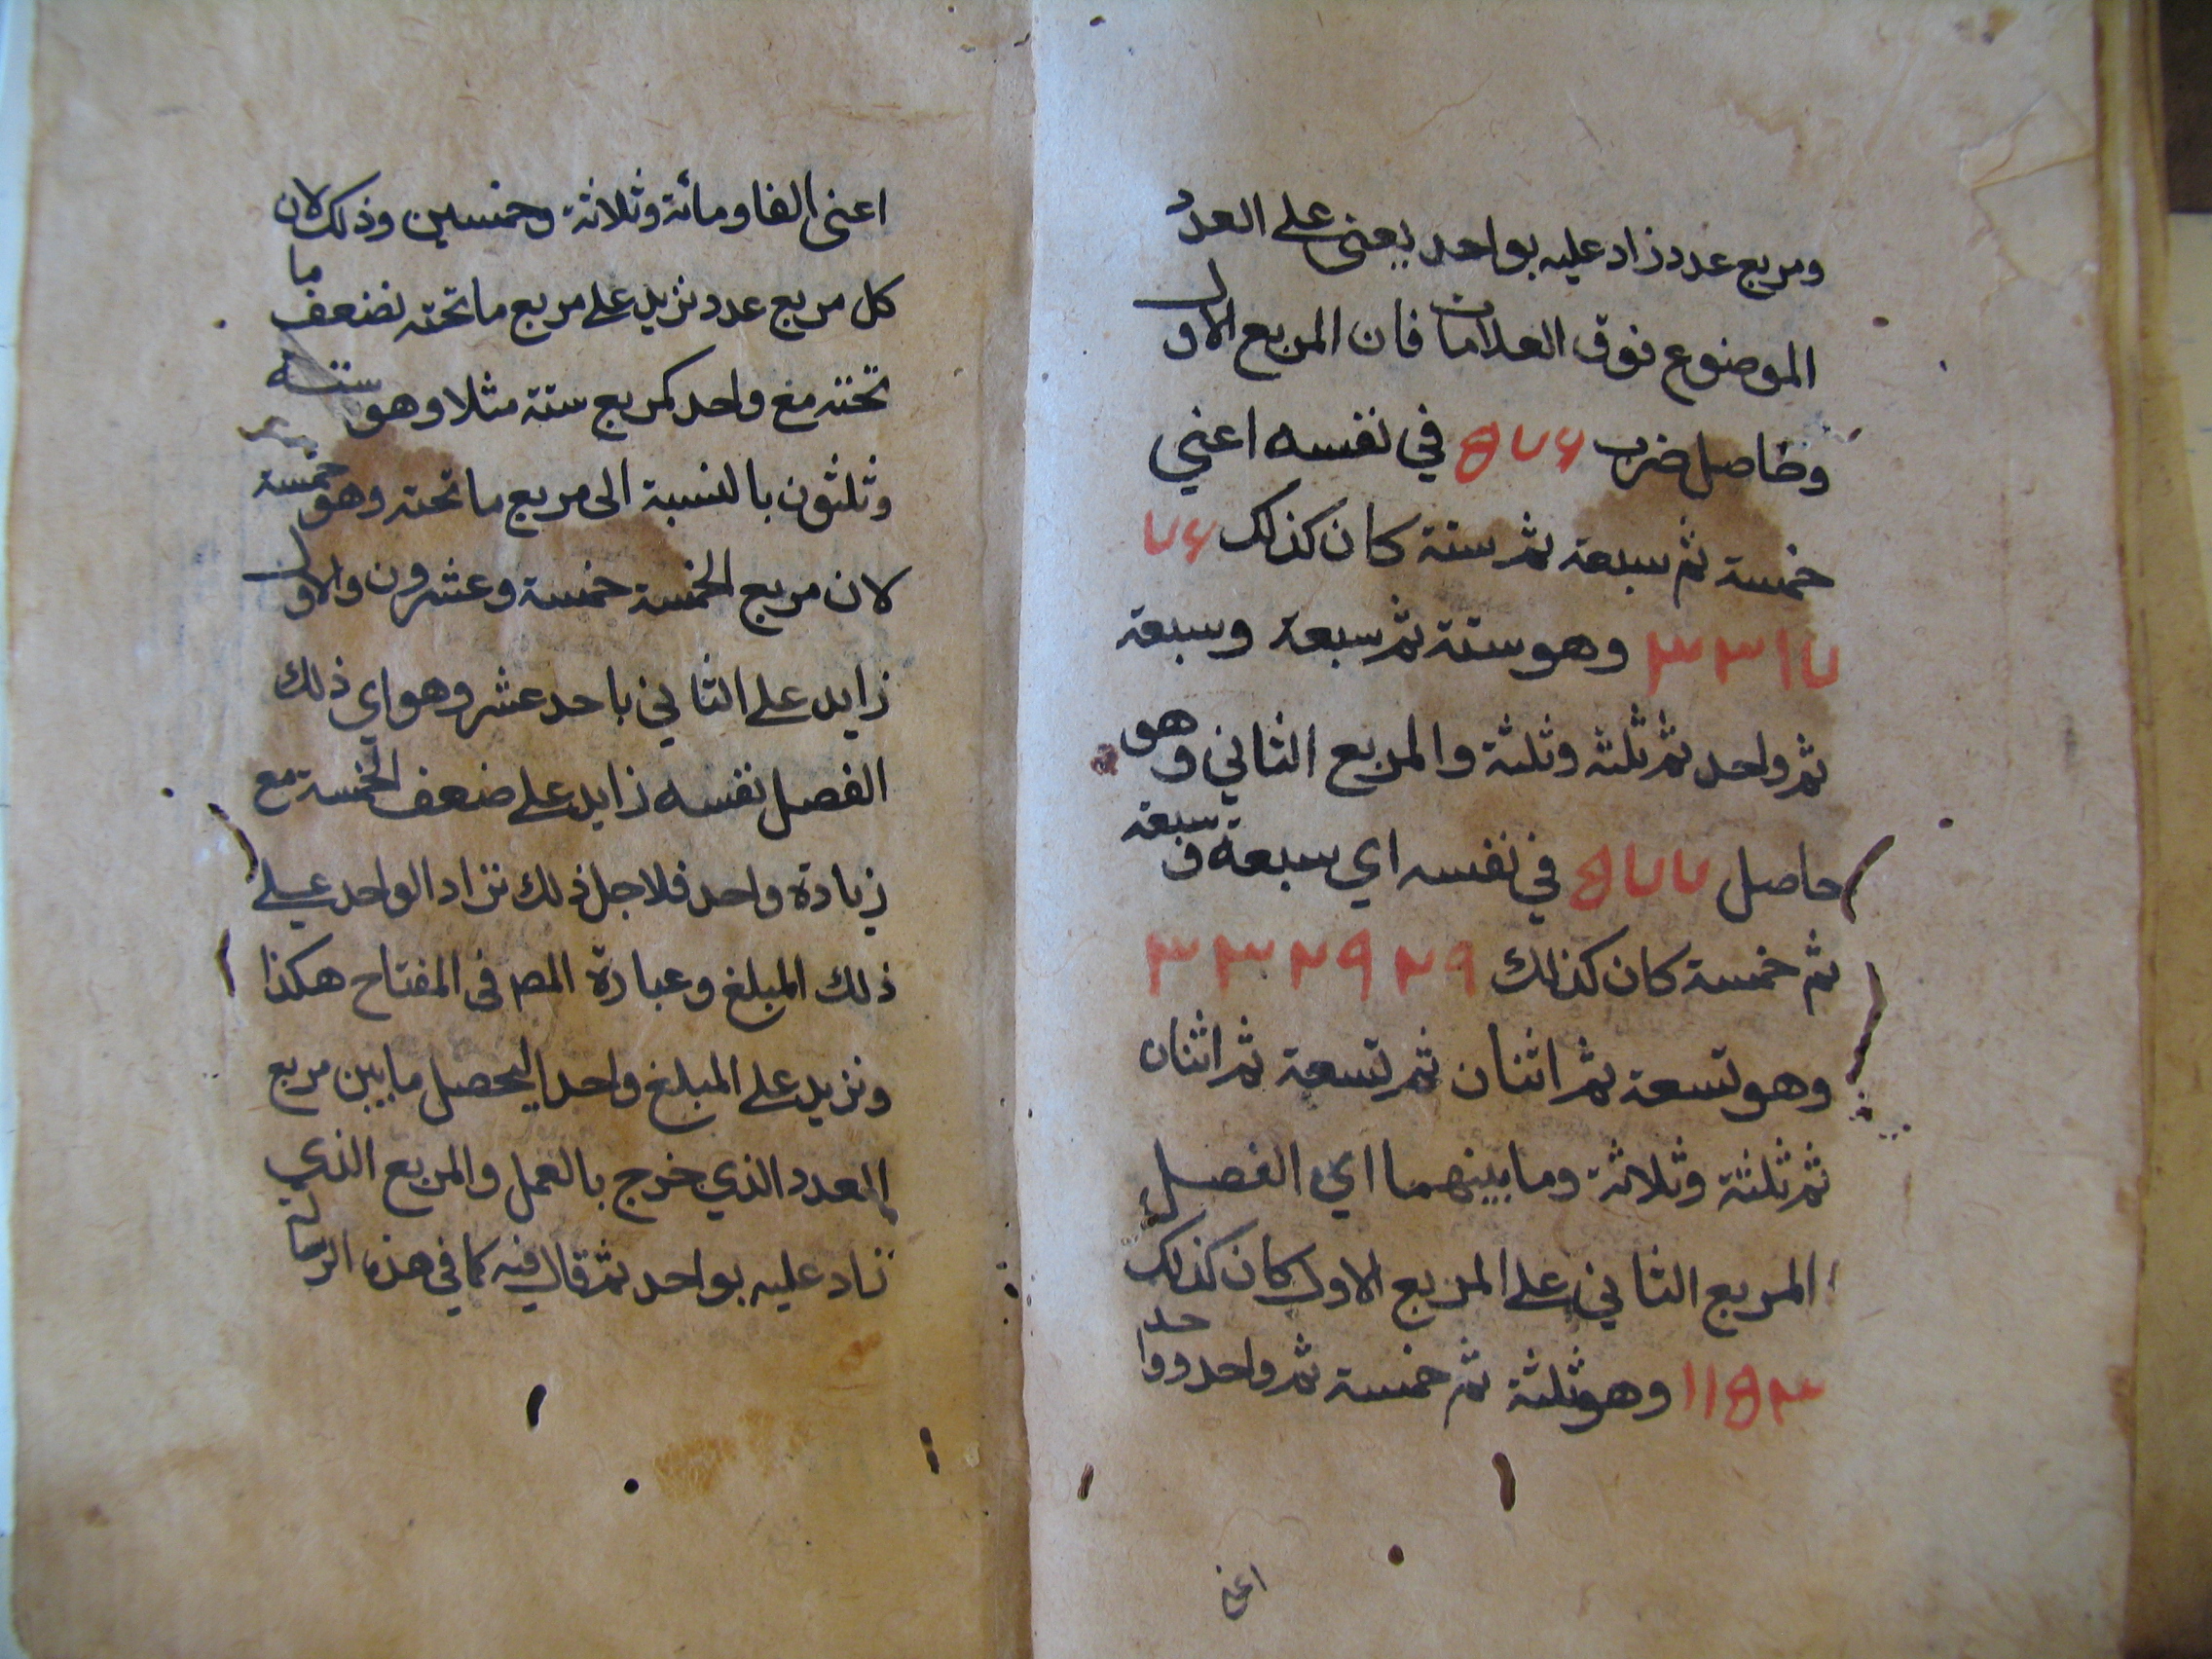 ومربع عدد زاد عليه بواحد يعنى على العدد
الموضوع فوق العلامات فان المربع الاول
وحاصل ضرب ٥٧٦ في نفسه اعني
خمسة ثم سبعة ثم ستة كان كذلك ٧٦
٣٣١٧ وهو ستة ثم سبعة وسبعة
ثم واحد ثم ثلثة وثلثة والمربع الثاني وهو
حاصل ٥٧٧ في نفسه اي سبعة وسبعة
ثم خمسة كان كذلك ٣٣٢٩٢٩
وهو تسعة ثم اثنان ثم تسعة ثم اثنان
ثم ثلثة وثلاثة وما بينهما اي الفصل
المربع الثاني على المربع الاول كان كذلك
١١٥٣ وهو ثلثة ثم خمسة ثم واحد وواحد
اعنى
اعنى الفا ومائة وثلاثة وخمسين وذلك لان
كل مربع عدد نزيد على مربع ما تحته بضعف ما
تحته مع واحد كمربع ستة مثلا وهو ستة
وثلثون بالنسبة الى مربع ما تحته وهو خمسة
لان مربع الخمسة خمسة وعشرون والاول
زايد على الثاني باحد عشر وهو اي ذلك
الفصل نفسه زايد على ضعف الخمسة مع
زيادة واحد فلاجل ذلك نزاد الواحد على
ذلك المبلغ وعبارة المص فى المفتاح هكذا
ونزيد على المبلغ واحدا ليحصل ما بين مربع
العدد الذي خرج بالعمل والمربع الذي
زاد عليه بواحد ثم قال فيه كما في هذه الرسالة